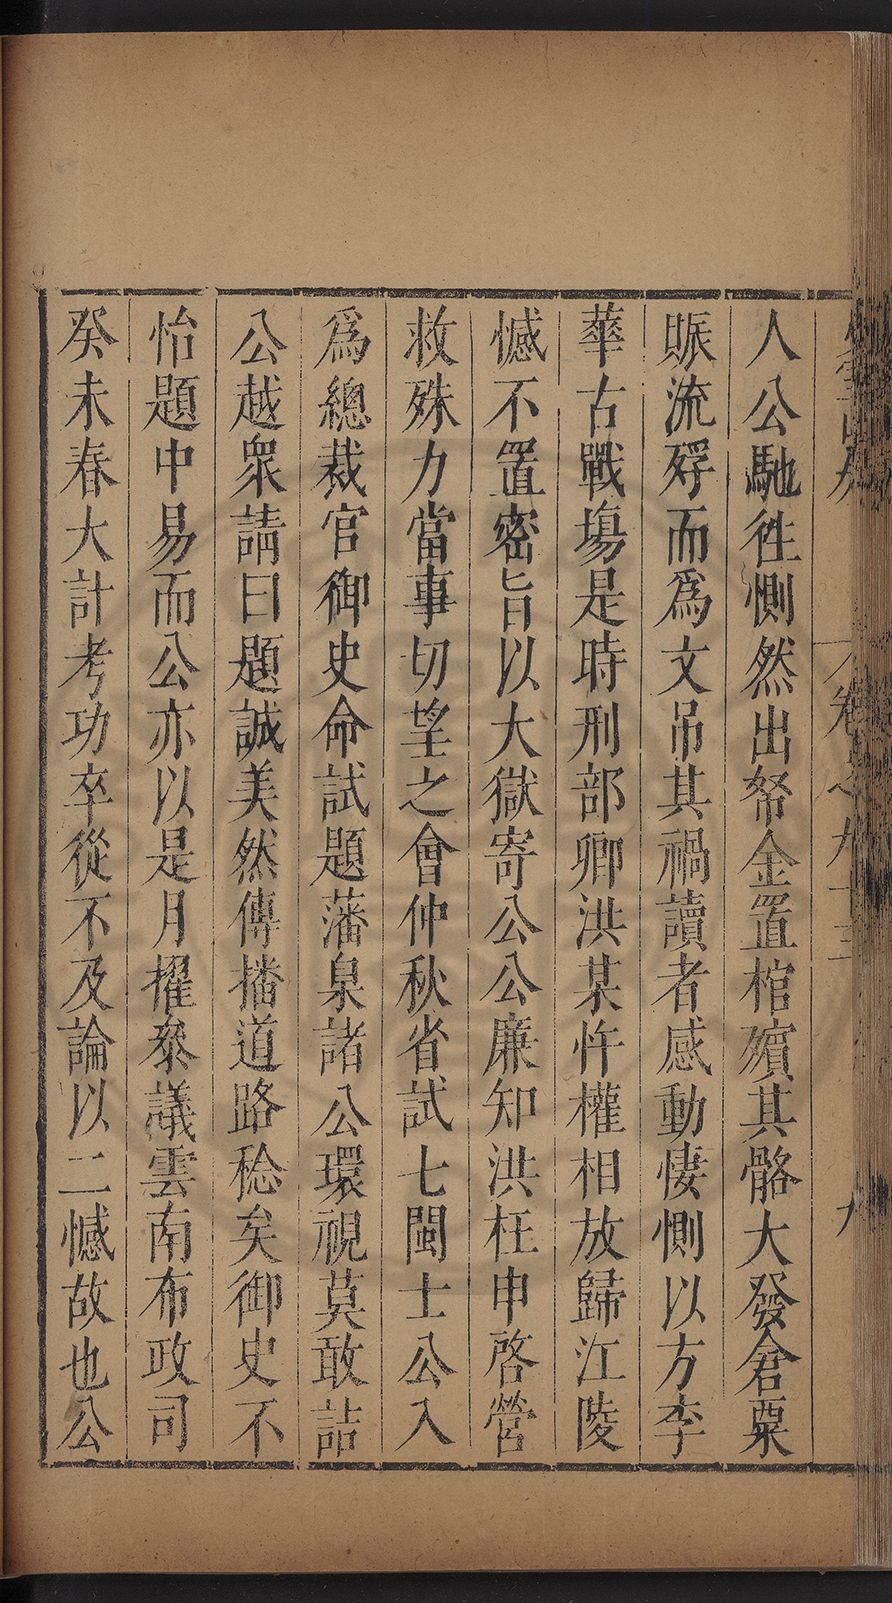 人公馳徃惻然出帑金置棺殯其骼大發倉粟
賑流殍而爲文吊其禍讀者感動悽惻以方李
華古戰塲是時刑部卿洪某忤權相放歸江陵
憾不置密旨以大獄寄公公廉知洪枉申啓營
救殊力當事切望之會仲秋省試七閩士公入
爲總裁官御史命試題藩臬諸公環視莫敢詰
公越衆請曰題誠美然傳播道路稔矣御史不
怡題中易而公亦以是月擢叅議雲南布政司
癸未春大計考功卒從不及論以二憾故也公
卷之九十三
九